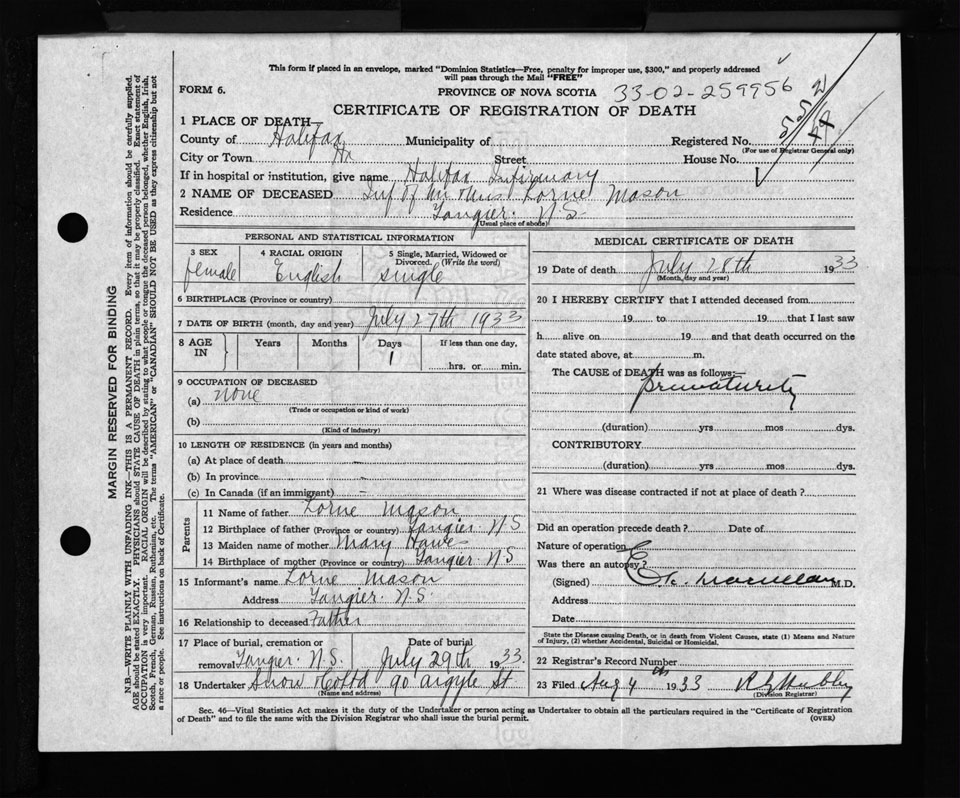 This form if placed in an envelope, marked "Dominion Statistics—Free, penalty for improper use, $300," and properly addressed
will pass through the Mail "FREE"
FORM 6.
PROVINCE OF NOVA SCOTIA 33-02-259956
CERTIFICATE OF REGISTRATION OF DEATH
552
44
1 PLACE OF DEATH—
County of Halifax Municipality of Registered No.
(For use of Registrar General only)
City or Town Hx Street House No.
If in hospital or institution, give name Halifax Infirmary
2 NAME OF DECEASED Inf of Mr & Mrs Lorne Mason
Residence Tangier. N.S.
(Usual place of abode)
PERSONAL AND STATISTICAL INFORMATION
3 SEX 4 RACIAL ORIGIN 5 Single, Married, Widowed or
Divorced. (Write the word)
female English single
6 BIRTHPLACE (Province or country)
7 DATE OF BIRTH (month, day and year) July 27th 1933
8 AGE IN Years Months Days If less than one day,
1 hrs. or min.
9 OCCUPATION OF DECEASED
(a) none
(Trade or occupation or kind of work)
(b)
(Kind of industry)
10 LENGTH OF RESIDENCE (in years and months)
(a) At place of death –
(b) In province –
(c) In Canada (if an immigrant) –
Parents
11 Name of father Lorne Mason
12 Birthplace of father (Province or country) Tangier. N S
13 Maiden name of mother Mary Hawes
14 Birthplace of mother (Province or country) Tangier. N S
15 Informant's name Lorne Mason
Address Tangier. N.S.
16 Relationship to deceased Father
17 Place of burial, cremation or Date of burial
removal Tangier. N.S. July 29th 1933.
18 Undertaker Snow & Co Ltd 90 Argyle St.
(Name and address)
MEDICAL CERTIFICATE OF DEATH
19 Date of death July 28th 1933
(Month, day and year)
20 I HEREBY CERTIFY that I attended deceased from
19 to 19 that I last saw
h alive on 19 and that death occurred on the
date stated above, at m.
The CAUSE of DEATH was as follows:—
prematurity
(duration) yrs mos dys.
CONTRIBUTORY
(duration) yrs mos dys.
21 Where was disease contracted if not at place of death?
Did an operation precede death? Date of
Nature of operation
Was there an autopsy?
(Signed) M.D.
Address
Date
State the Disease causing Death, or in death from Violent Causes, state (1) Means and Nature
of Injury, (2) whether Accidental, Suicidal or Homicidal.
22 Registrar's Record Number
23 Filed Aug 4th 1933
(Division Registrar)
Sec. 46—Vital Statistics Act makes it the duty of the Undertaker or person acting as Undertaker to obtain all the particulars required in the "Certificate of Registration
of Death" and to file the same with the Division Registrar who shall issue the burial permit. (OVER)
MARGIN RESERVED FOR BINDING
N.B.—WRITE PLAINLY WITH UNFADING INK—THIS IS A PERMANENT RECORD. Every item of information should be carefully supplied.
AGE should be stated EXACTLY. PHYSICIANS should STATE CAUSE OF DEATH in plain terms, so that it may be properly classified. Exact statement of
OCCUPATION is very important. RACIAL ORIGIN will be described by stating to what people or tongue the deceased person belonged, whether English, Irish,
Scotch, French, German, Russian, Ruthenian, etc. The terms "AMERICAN" or "CANADIAN" SHOULD NOT BE USED as they express citizenship but not
a race or people. See instructions on back of Certificate.